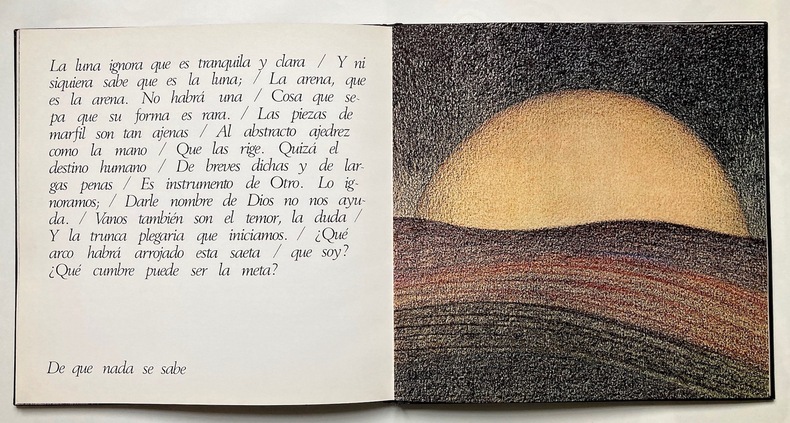 La luna ignora que es tranquila y clara / Y ni
siquiera sabe que es la luna; / La arena, que
es la arena. No habrá una / Cosa que se-
pa que su forma es rara. / Las piezas de
marfil son tan ajenas / Al abstracto ajedrez
como la mano / Que las rige. Quizá el
destino humano / De breves dichas y de lar-
gas penas / Es instrumento de Otro. Lo ig-
noramos; / Darle nombre de Dios no nos ayu-
da. / Vanos también son el temor, la duda /
Y la trunca plegaria que iniciamos. / ¿Qué
arco habrá arrojado esta saeta / que soy?
¿Qué cumbre puede ser la meta?
De que nada se sabe